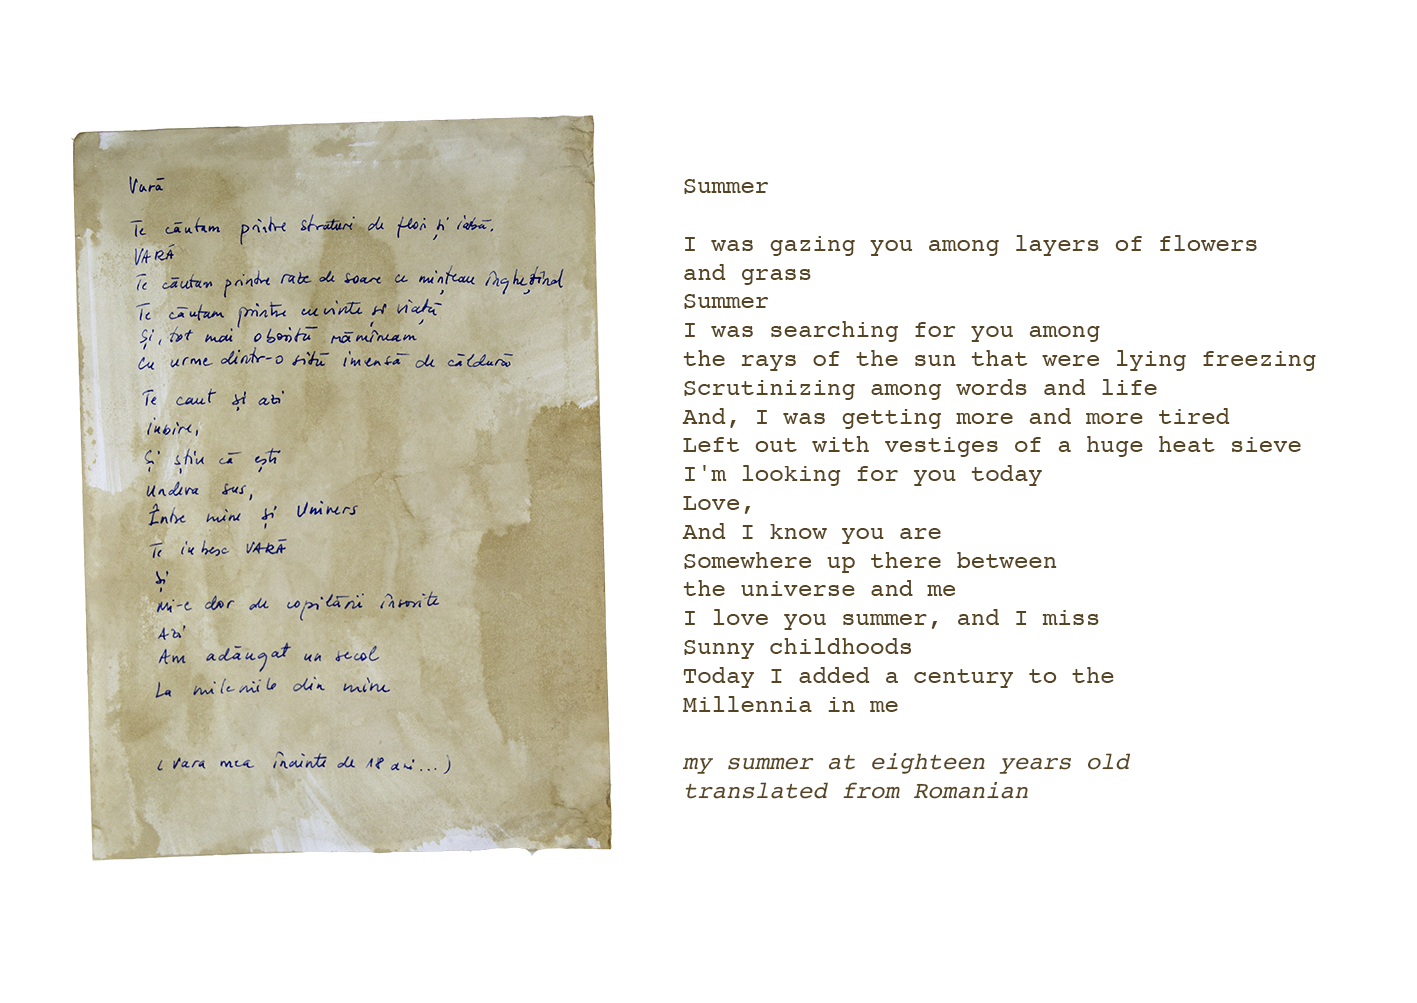 Vară
Te căutam printre straturi de flori și iarbă.
VARĂ
Te căutam printre raze de soare ce mințeau înghețând
Te căutam printre cuvinte și viață
Și, tot mai obosită rămîneam
Cu urme dintr-o sită imensă de căldură
Te caut și azi
Iubire,
Și știu că ești
Undeva sus,
Între mine și Univers
Te iubesc VARĂ
Și
Mi-e dor de copilării însorite
Azi
Am adăugat un secol
La mileniile din mine
(Vara mea înainte de 18 ani...)
Summer
I was gazing you among layers of flowers
and grass
Summer
I was searching for you among
the rays of the sun that were lying freezing
Scrutinizing among words and life
And, I was getting more and more tired
Left out with vestiges of a huge heat sieve
I'm looking for you today
Love,
And I know you are
Somewhere up there between
the universe and me
I love you summer, and I miss
Sunny childhoods
Today I added a century to the
Millennia in me
my summer at eighteen years old
translated from Romanian